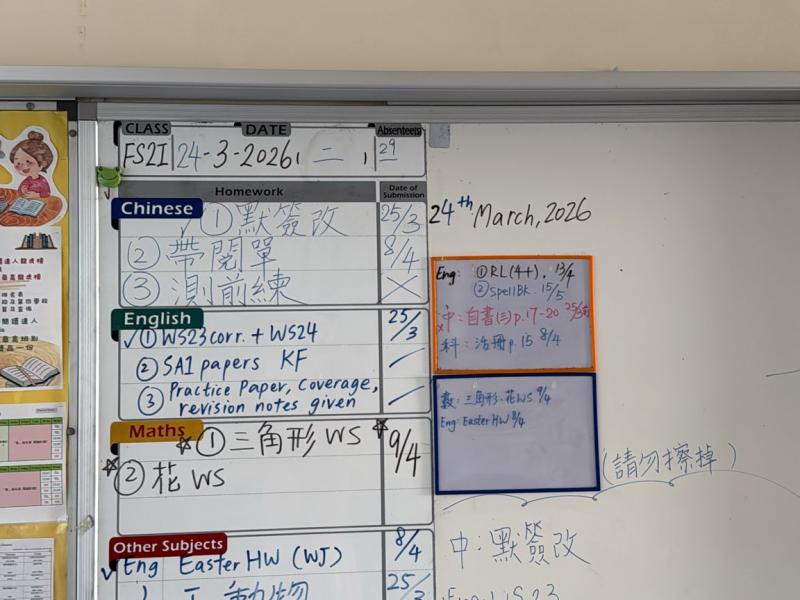 CLASS DATE Absentee(s)
FS2I 24-3-2026, 二, 29
Homework Date of Submission
Chinese
✓① 默簽改 25/3
② 帶閱單 8/4
③ 測前練 ×
English
✓① WS23 corr. + WS24 25/3
② SA1 papers KF
③ Practice Paper, Coverage,
revision notes given
Maths
☆① 三角形 WS ☆ 9/4
☆② 花 WS
Other Subjects
✓Eng Easter HW (WJ) 8/4
動物 25/3
24th March, 2026
Eng: ① RL(4+). 13/4
② SpellBk. 15/5
中: 自書(三) p.17-20 25/3
科: 活冊 p.15 8/4
數: 三角形.花WS 9/4
Eng: Easter HW 8/4
(請勿擦掉)
中: 默簽改